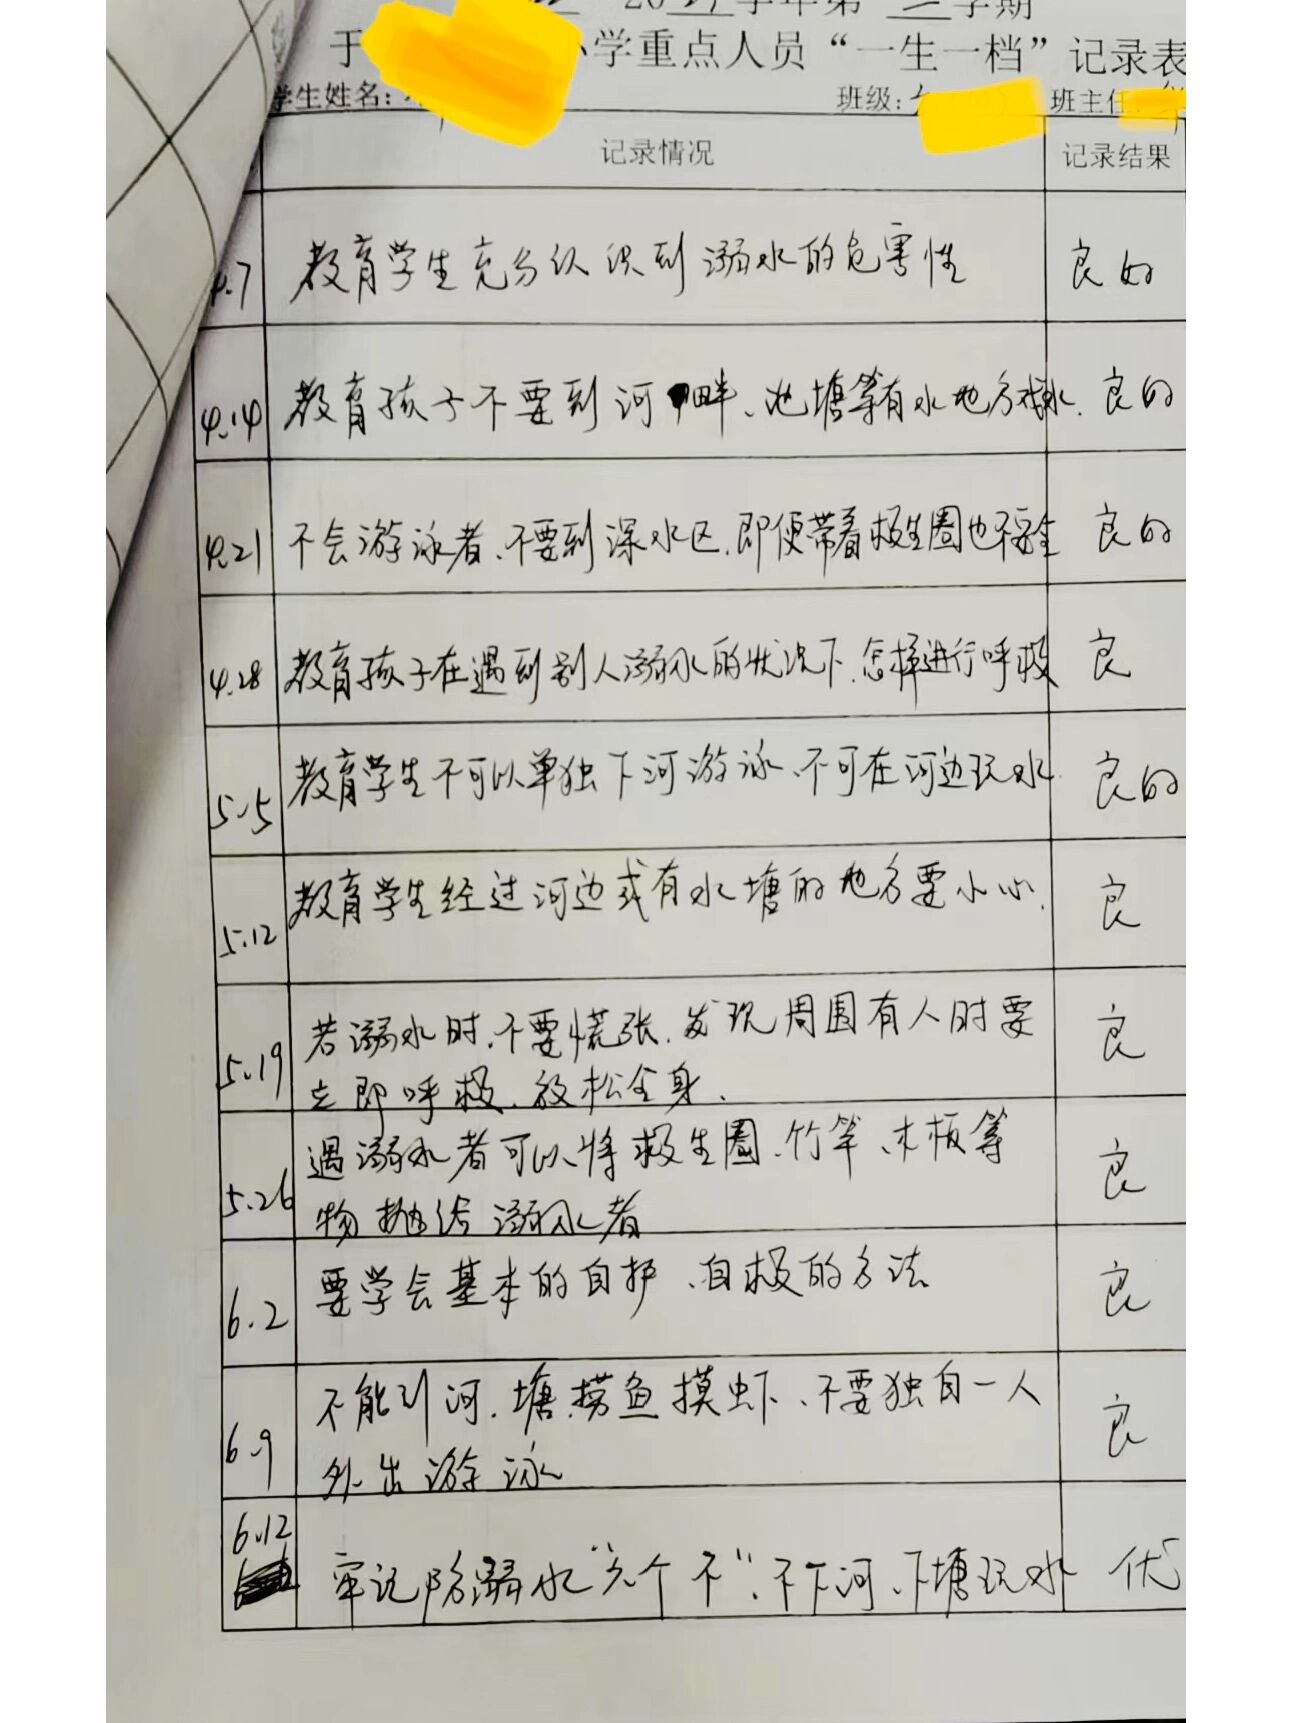 学年第二学期
小学重点人员“一生一档”记录表
学生姓名： 班级： 班主任
记录情况 记录结果
4.7 教育学生充分认识到溺水的危害性 良好
4.14 教育孩子不要到河畔、池塘等有水地方戏水. 良好
4.21 不会游泳者、不要到深水区,即便带着救生圈也不安全 良好
4.28 教育孩子在遇到别人溺水的状况下.怎样进行呼救 良
5.5 教育学生不可以单独下河游泳、不可在河边玩水 良好
5.12 教育学生经过河边或有水塘的地方要小心. 良
5.19 若溺水时.不要慌张.发现周围有人时要 良
立即呼救.放松全身.
5.26 遇溺水者可以将救生圈、竹竿、木板等 良
物抛给溺水者
6.2 要学会基本的自护、自救的方法 良
6.9 不能到河.塘.捞鱼摸虾、不要独自一人 良
外出游泳
6.12
牢记防溺水“六个不”、不下河、下塘玩水 优